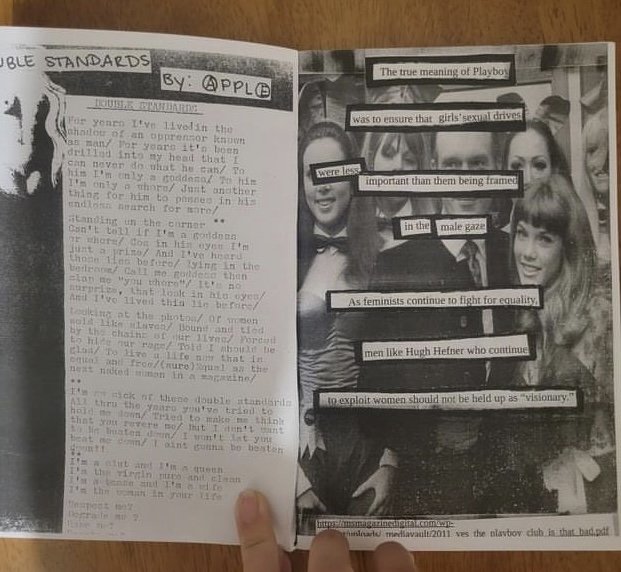 UBLE STANDARDS
BY: APPLE
DOUBLE STANDARDS
For years I've lived in the
shadow of an oppressor known
as man/ For years it's been
drilled into my head that I
can never do what he can/ To
him I'm only a goddess/ To him
I'm only a whore/ Just another
thing for him to posses in his
endless search for more/
Standing on the corner **
Can't tell if I'm a goddess
or whore/ Cos in his eyes I'm
just a prize/ And I've heard
those lies before/ lying in the
bedroom/ Call me goddess then
slap me "you whore"/ It's no
surprise, that look in his eyes/
And I've lived this lie before/
Looking at the photos/ Of women
sold like slaves/ Bound and tied
by the chains of our lives/ Forced
to hide our rage/ Told I should be
glad/ To live a life now that is
equal and free/(sure) Equal as the
next naked woman in a magazine/
**
I'm so sick of these double standards
All thru the years you've tried to
hold me down/ Tried to make me think
that you revere me/ but I don't want
to be beaten down/ I won't let you
beat me down/ I aint gunna be beaten
down!!
**
I'm a slut and I'm a queen
I'm the virgin pure and clean
I'm a tease and I'm a wife
I'm the woman in your life
Respect me?
Degrade me ?
The true meaning of Playboy
was to ensure that girls' sexual drives
were less important than them being framed
in the male gaze
As feminists continue to fight for equality,
men like Hugh Hefner who continue
to exploit women should not be held up as "visionary."
https://msmagazinedigital.com/wp-
uploads/ mediavault/2011 yes the playboy club is that bad.pdf